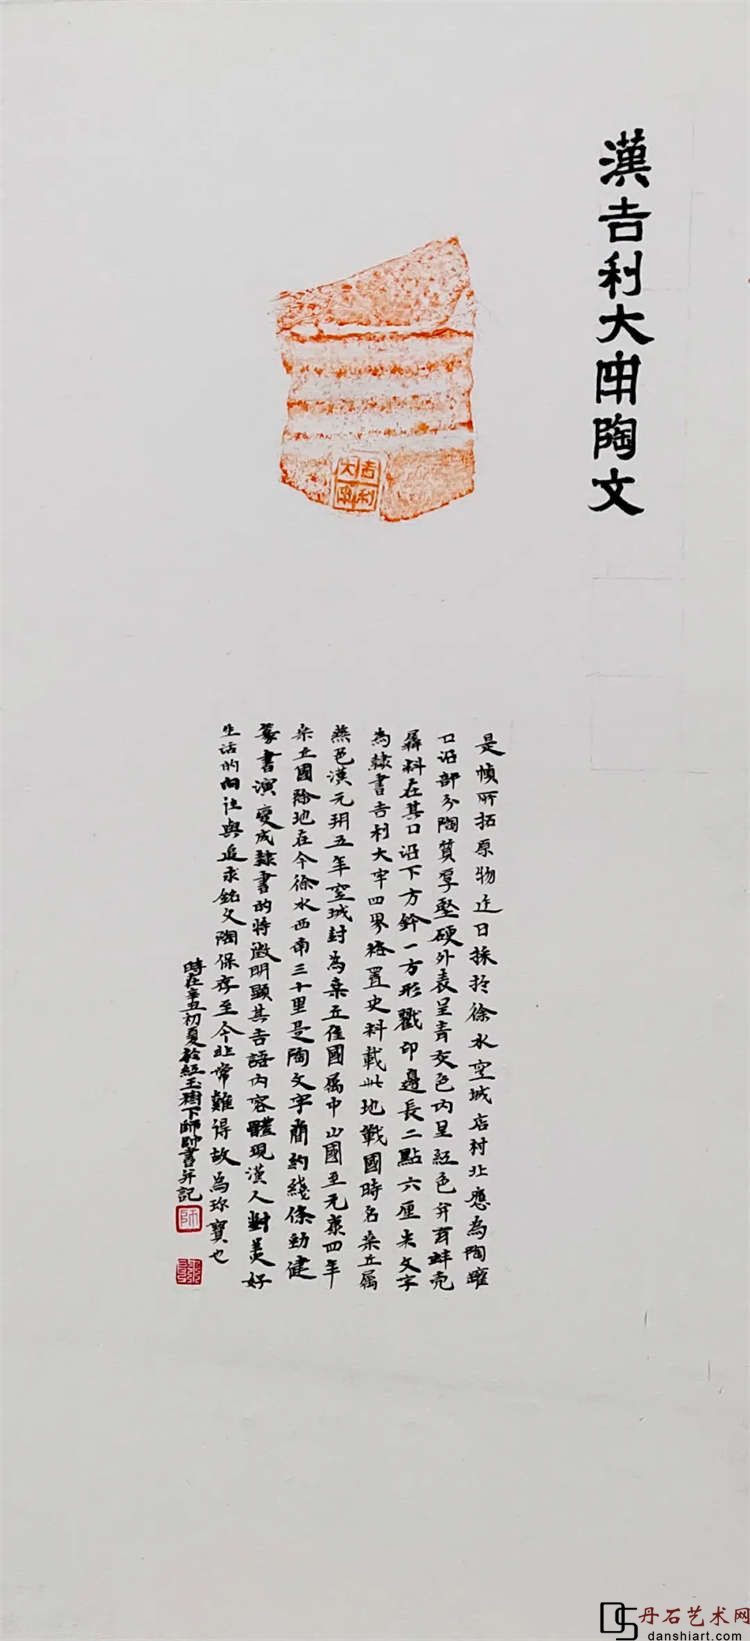 漢吉利大牢陶文
吉利
大牢
是幀所拓原物近日採於徐水空城店村北應為陶甕
口沿部分陶質厚堅硬外表呈青灰色內呈紅色并有蚌壳
羼料在其口沿下方鈐一方形戳印邊長二點六厘米文字
為隸書吉利大牢四界格置史料載此地戰國時名桒丘屬
燕邑漢元朔五年空城封為桒丘侯國屬中山國至元鼎四年
桒丘國除地在今徐水西南三十里是陶文字簡約綫條勁健
篆書演變成隸書的特徵明顯其吉語內容體現漢人對美好
生活的向往與追求銘文陶保存至今非常難得故為珎寶也
時在辛丑初夏於紅玉樹下師帥書并記
師
丹石艺术网
danshiart.com